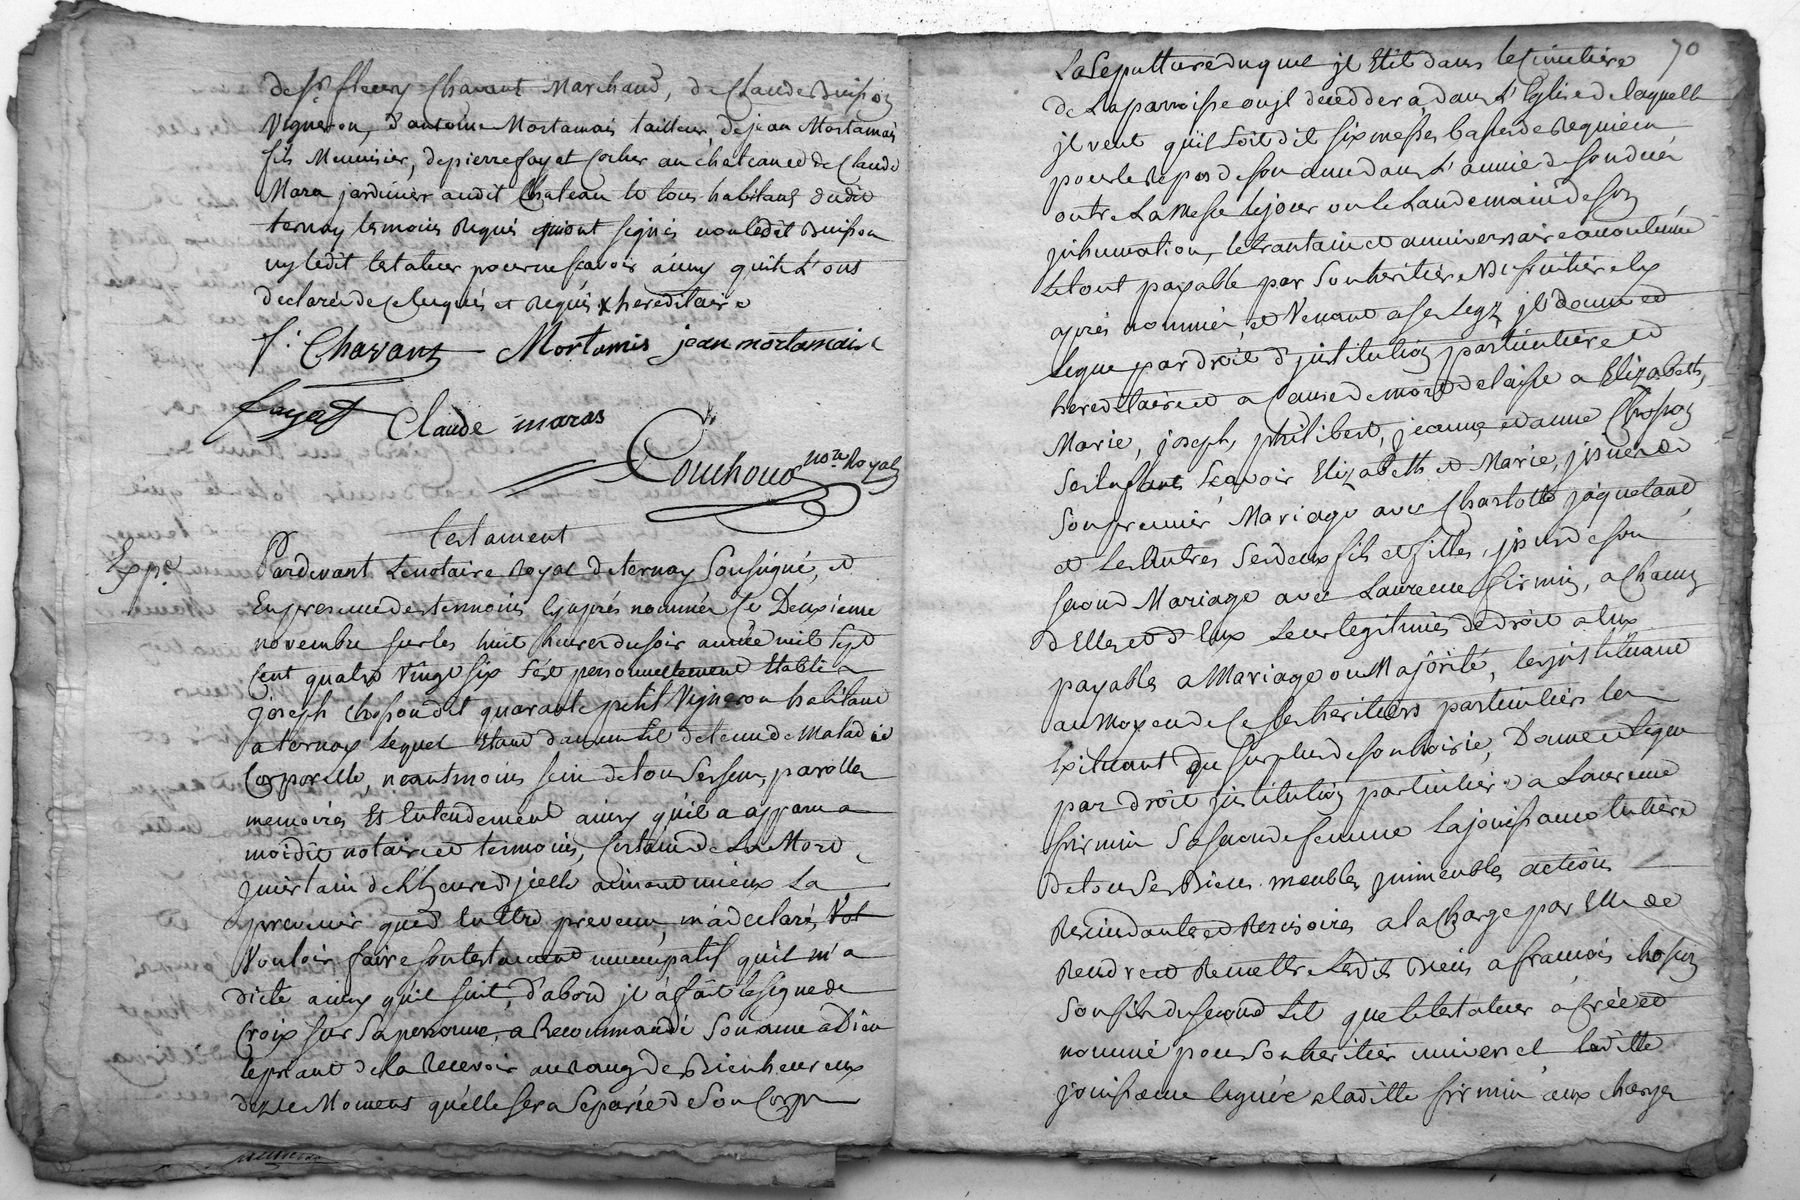 de Sr. fleury Chavant Marchand, de Claude Buisson
Vigneron, d'antoine Mortamais tailleur, de jean Mortamais
fils Menuisier, de pierre fayet Cocher au château et de Claude
Mara jardinier audit Chateau to tous habitant dudit
ternay temoins Requis qui ont signés non ledit Buisson
ny ledit testateur pour ne scavoir ainsy quils L'ont
declarés de ce enquis et requis x hereditaire
f. Chavant Mortamis jean mortamais
fayet Claude maras
Couchoud no.re Royal
testament
Exp.é
Pardevant Le notaire Royal de ternay Soussigné, et
En presence des temoins cy après nommés Ce Deuxieme
novembre sur les huit heures du soir année mil sept
Cent quatre vingt six s'est personnellement Etabli
joseph chosson dit quarante petit Vigneron habitant
a ternay Lequel Etant dans un Lit detenu de Maladie
Corporelle, neantmoins sein de tous ses sens, parolles
memoires Et Entendement ainsy qu'il a apparu a
moidit notaire et temoins, Certain de La Mort
jncertain de L'heure d'jcelle aimant mieux La
prevenir que d'en Etre prevenu, m'a declaré, Vol
Vouloir faire son testament nuncupatif qu'il m'a
dicté ainsy qu'il suit, d'abord jl à fait le signe de
Croix sur Sa personne, a Recommandé Son ame à Dieu
le priant de la Recevoir au Rang des Bienheureux
dez le Moment qu'elle sera Separée de Son Corps
70
La Sepulture duquel jl Elit dans le Cimetiere
de La parroisse ou jl decedera, dans L'Eglise de laquelle
jl veut qu'il soit dit six messes basses de Requiem
pour le Repos de son ame dans L'année de son decés
outre La Messe le jour ou le Landemain de son
jnhumation, le trantain et anniversaire accoutumé
Le tout payable par Son heritière Usufruitière cy
après nommée, et Venant a ses legz, jl donne et
legue par droit d'jnstitution particuliere et
hereditaire et a Cause de mort delaisse a Elizabeth,
Marie, joseph, philibert, jeanne, et anne Chosson
Ses Enfants Scavoir Elizabeth et Marie, jssues de
Son premier Mariage avec Charlotte jaquetand
et Les Autres Ses deux fils et filles, jssus de son
second Mariage avec Laurence firmin, a Chacun
d'Elles et d'Eux Leur legitimes de droit a Eux
payables a Mariage ou Majorité, les jnstituant
au Moyen de Ce Ses heritiers particuliers les
Excluant du surplus de son hoirie, Donne et legue
par droit jnstitution particuliere a Laurence
firmin Sa seconde femme La jouissance Entière
de tous Ses Biens meubles jmmeubles actions
Rescindantes et Rescisoires a la charge par Elle de
Rendre et Remettre Lesdits Biens a françois chosson
Son fils du second Lit que le testateur à Créé et
nommé pour Son heritier universel Ladite
jouissance leguée a ladite firmin aux charges